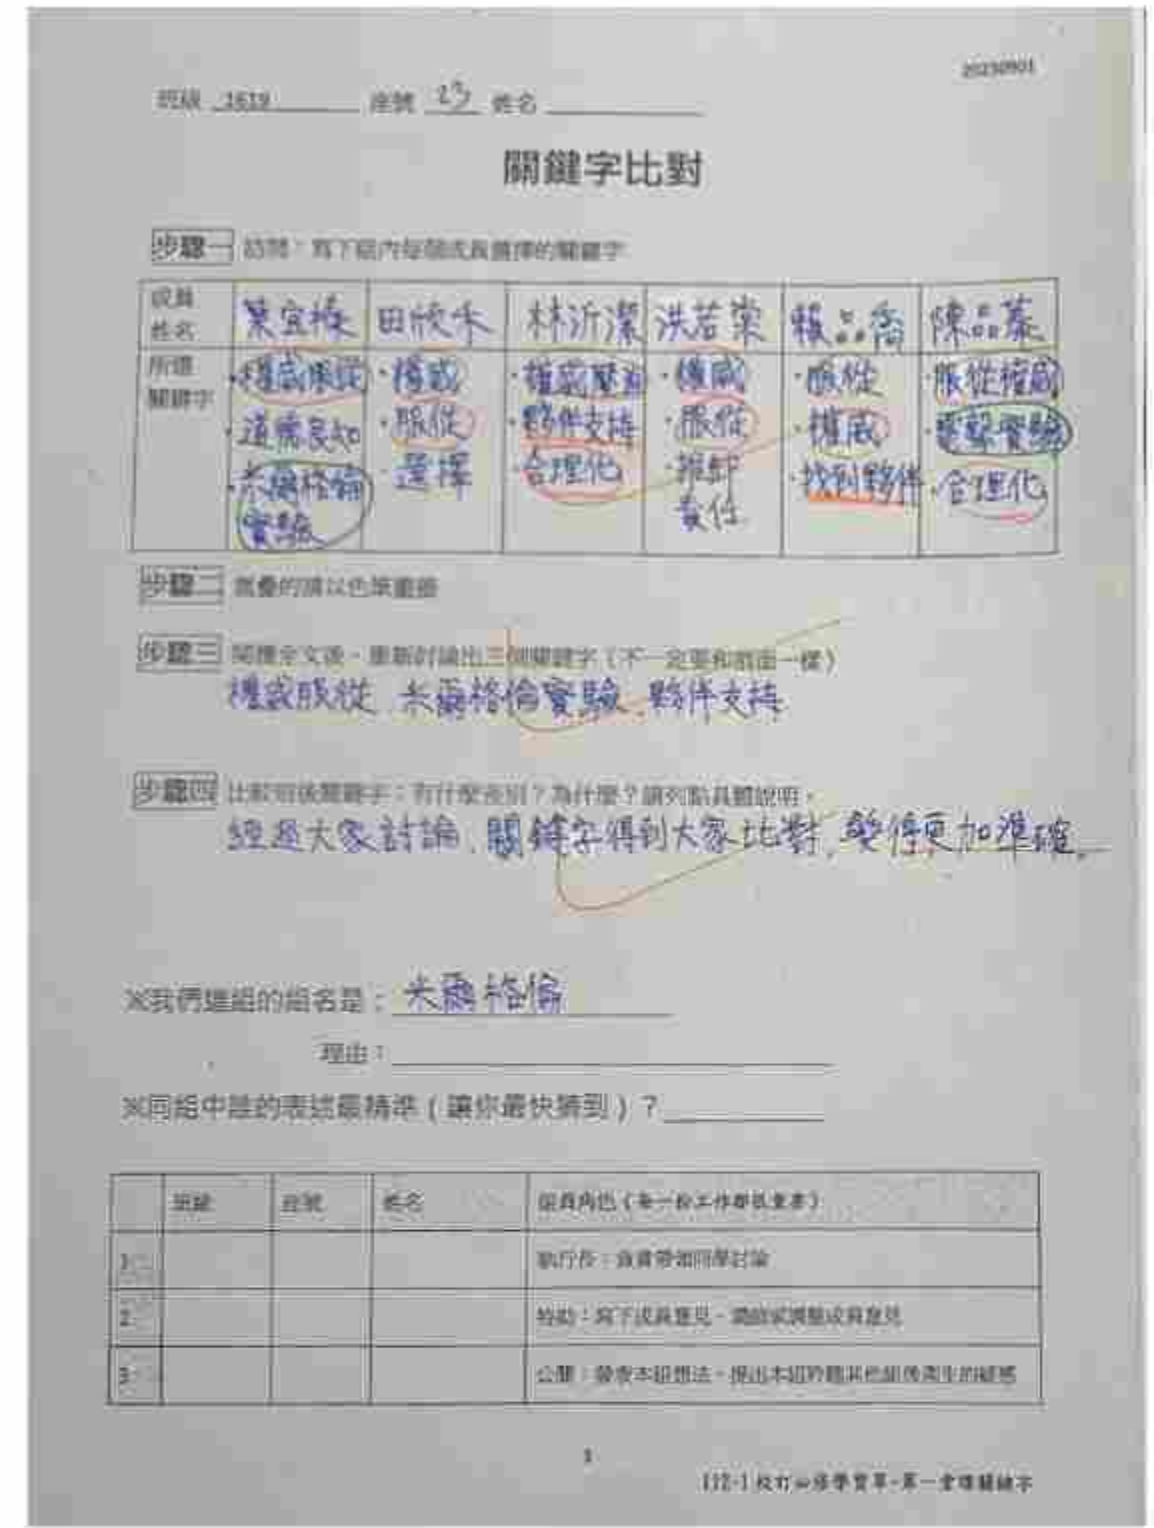 20230901
班級 1619 座號 23 姓名
關鍵字比對
步驟一 訪問：寫下組內每個成員選擇的關鍵字
成員姓名 葉宜榛 田欣禾 林沂潔 洪若棠 賴品喬 陳品蓁
所選關鍵字
·權威服從 ·權威 ·權威壓迫 ·權威 ·服從 ·服從權威
·道德良知 ·服從 ·夥伴支持 ·服從 ·權威 ·電擊實驗
·米爾格倫實驗 ·選擇 ·合理化 ·推卸責任 ·找到夥伴 ·合理化
步驟二 重疊的請以色筆圈描
步驟三 閱讀全文後，重新討論出三個關鍵字（不一定要和前面一樣）
權威服從、米爾格倫實驗、夥伴支持
步驟四 比較前後關鍵字：有什麼差別？為什麼？請列點具體說明。
經過大家討論，關鍵字得到大家比對，變得更加準確。
※我們這組的組名是：米爾格倫
理由：
※同組中誰的表述最精準（讓你最快猜到）？
班級 座號 姓名 組員角色（每一份工作都很重要）
1 執行長：負責帶領同學討論
2 特助：寫下成員意見、
3 公關：發表本組想法、提出本組聆聽其他組後產生的疑惑
1
112-1校訂必修學習單-第一堂課關鍵字